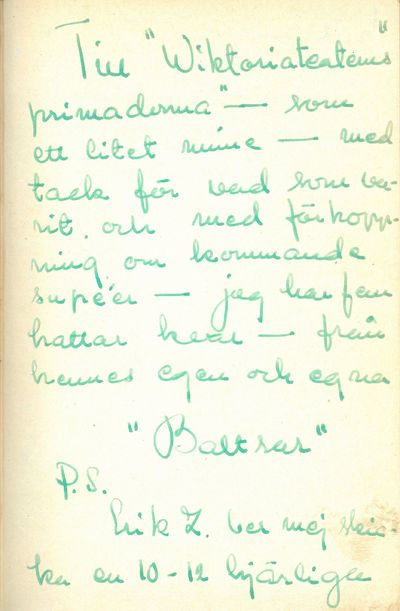 Till "Wiktoriateaterns"
primadonna" — som
ett litet minne — med
tack för vad som va-
rit, och med förhopp-
ning om kommande
supéer — jag har fem
hattar kvar — från
hennes egen och egna
"Baltsar"
P.S.
Erik Z. ber mej skic-
ka en 10-12 hjärtliga